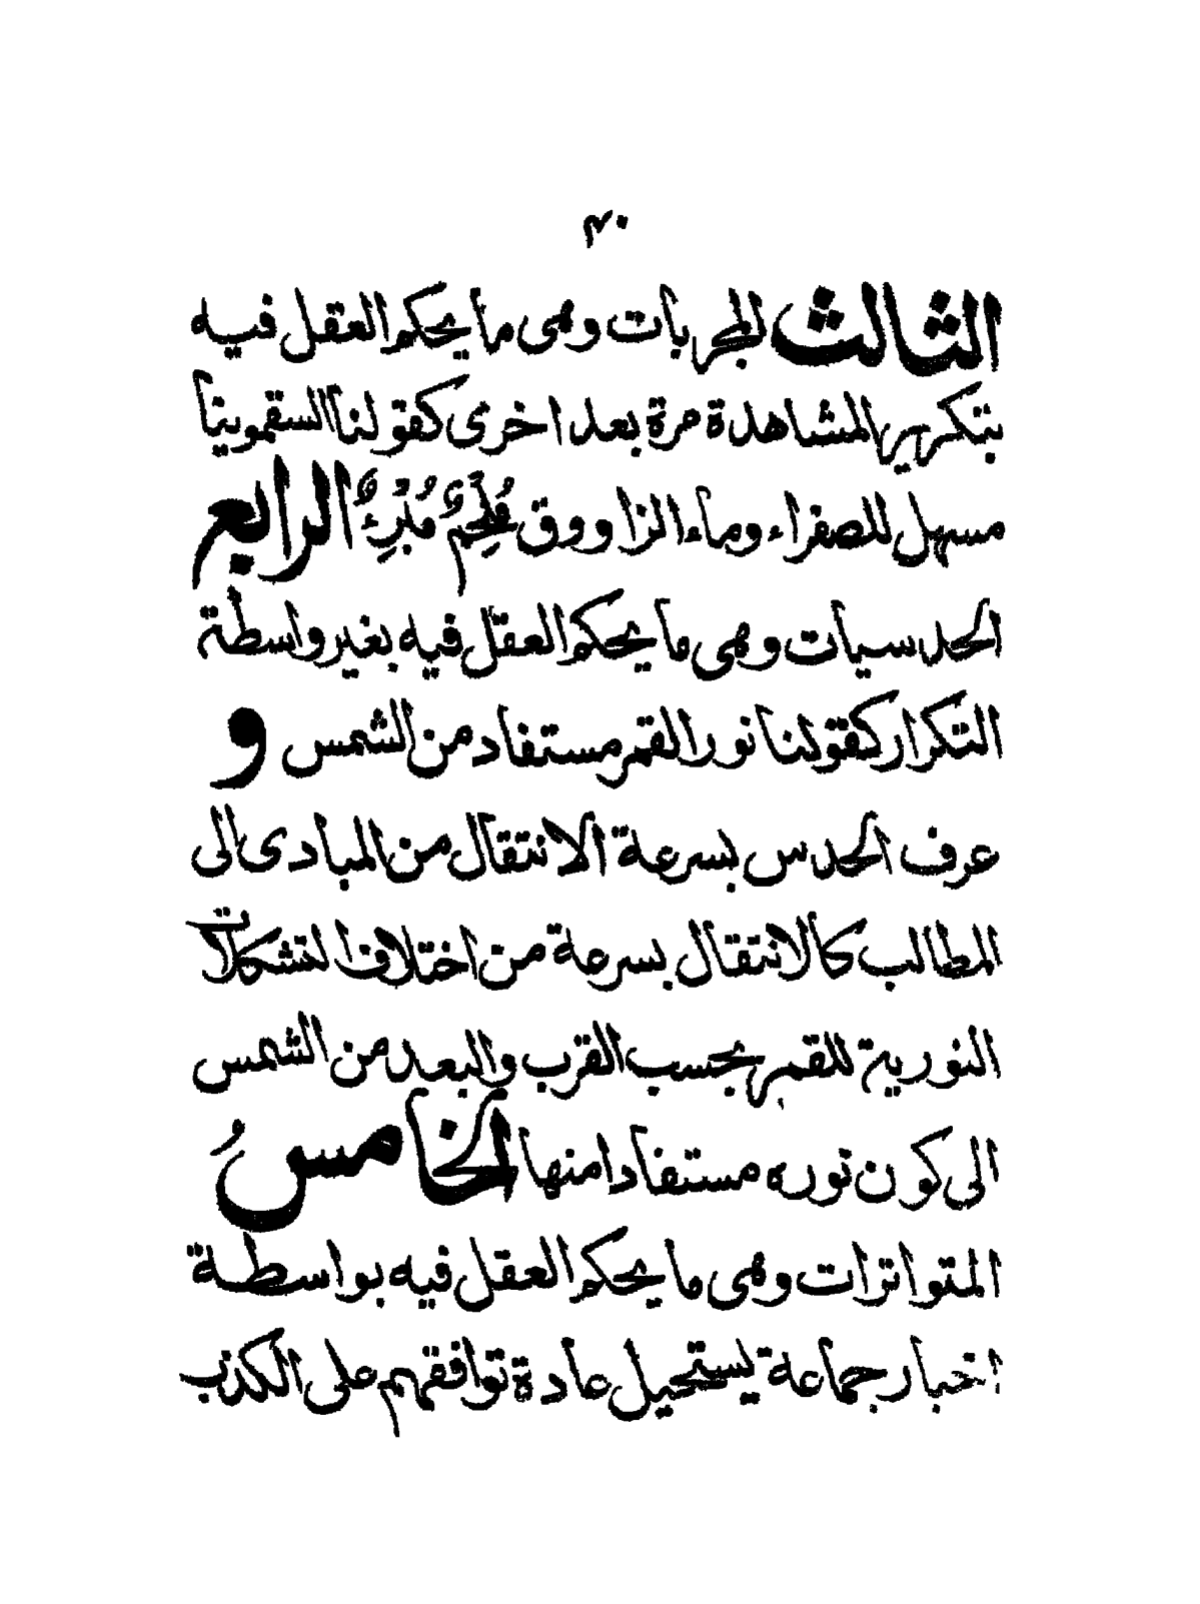 ٤٠
الثالث المجربات وهى ما يحكم العقل فيه
بتكرير المشاهدة مرة بعد اخرى كقولنا السقمونيا
مسهل للصفراء وماء الزاووق مُلْحِمٌ مُبْرِءٌ الرابع
الحدسيات وهى ما يحكم العقل فيه بغير واسطة
التكرار كقولنا نور القمر مستفاد من الشمس و
عرف الحدس بسرعة الانتقال من المبادى الى
المطالب كالانتقال بسرعة من اختلاف التشكلات
النورية للقمر بحسب القرب والبعد من الشمس
الى كون نوره مستفادا منها الخامسُ
المتواترات وهى ما يحكم العقل فيه بواسطة
اخبار جماعة يستحيل عادة توافقهم على الكذب